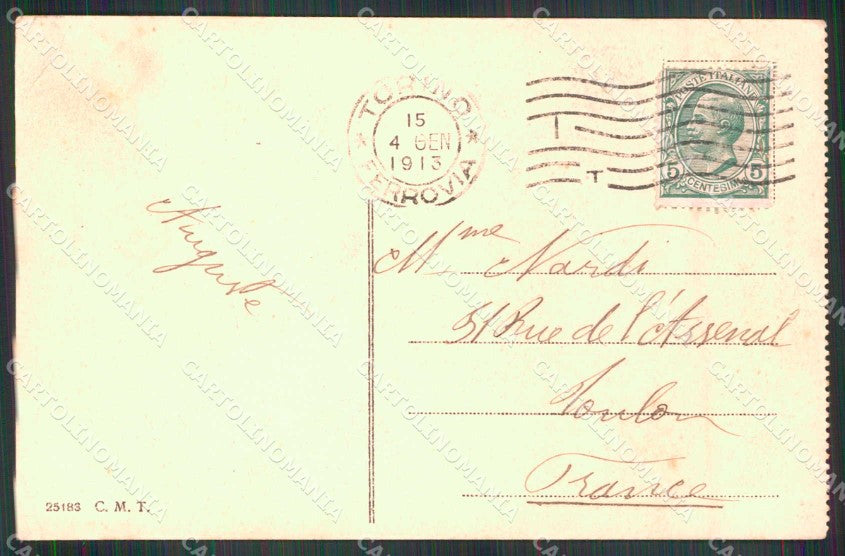 TORINO
15
4 GEN
1913
FERROVIA
POSTE ITALIANE
5 CENTESIMI 5
Auguste
Mme Nardi
51 Rue de l'Arsenal
Toulon
France
25183 C. M. T.
CARTOLINOMANIA